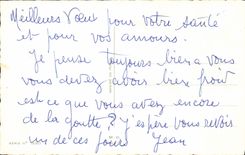 Meilleurs Vœux pour votre santé
et pour vos amours.
Je pense toujours bien a vous
vous devez avoir bien froid
est-ce que vous avez encore
de la goutte? J'espère vous revoir
un de ces jours Jean